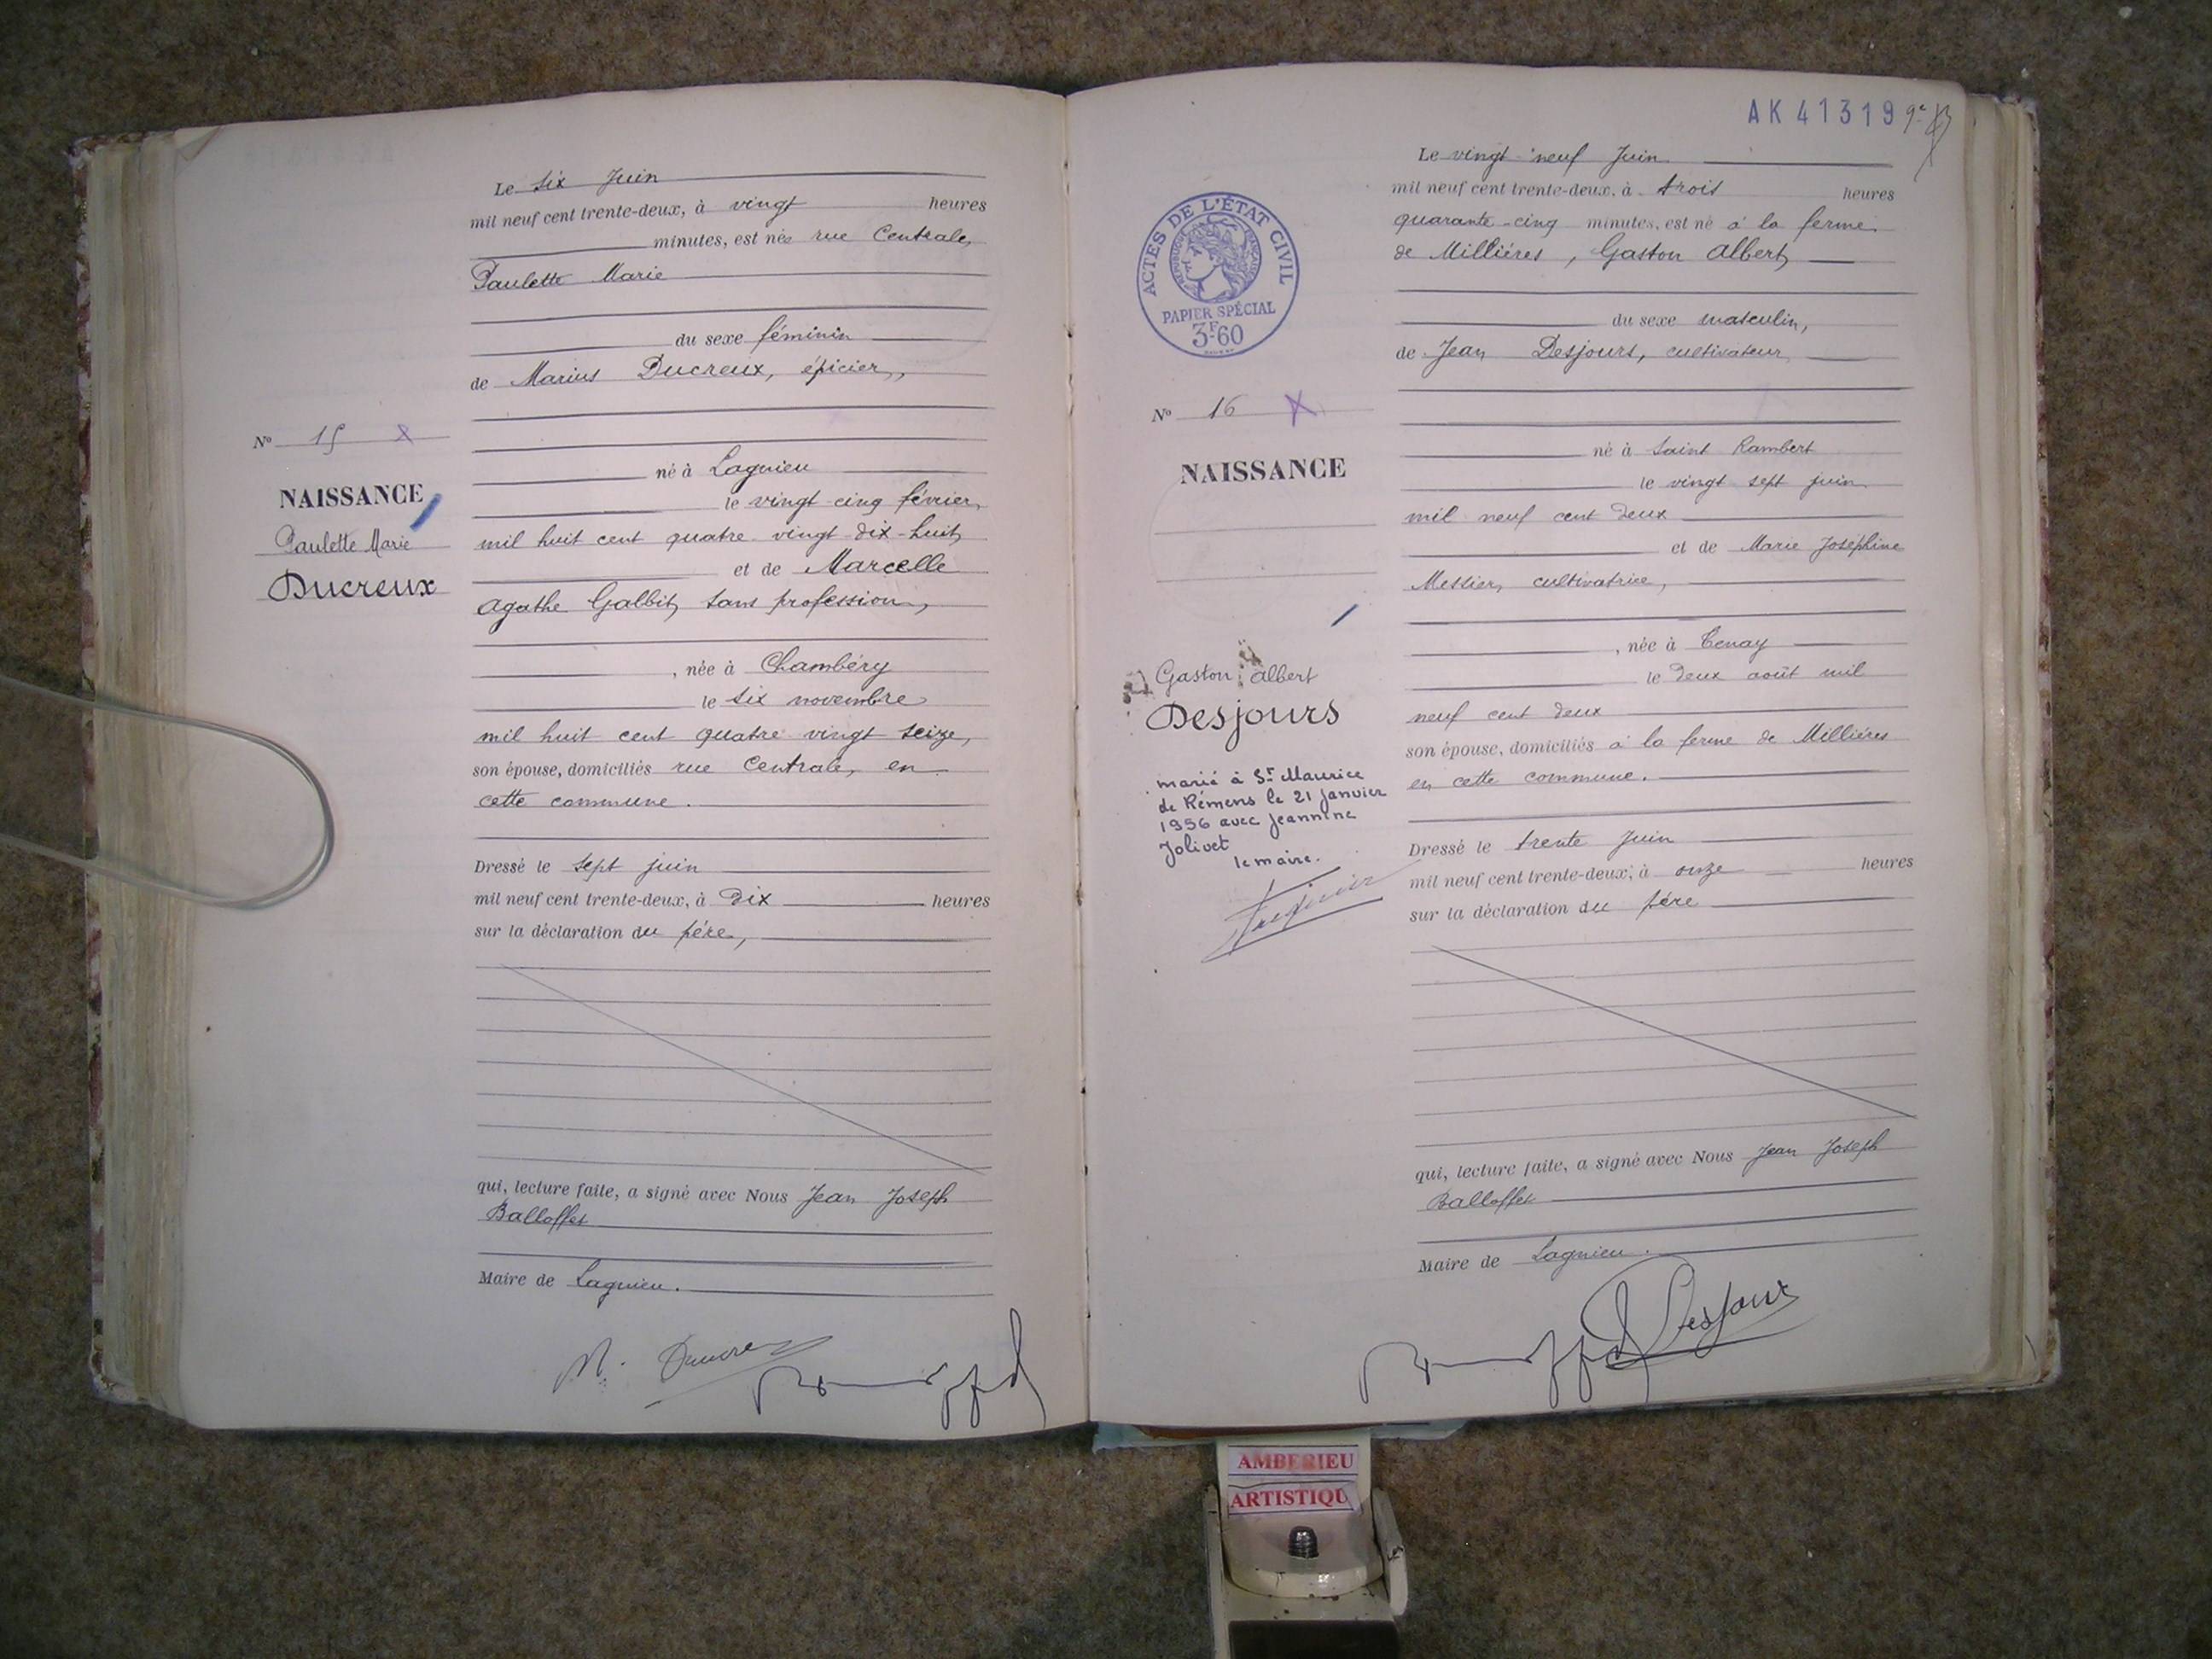 Le six Juin
mil neuf cent trente-deux, à vingt heures
minutes, est née rue Centrale,
Paulette Marie
du sexe féminin
de Marius Ducreux, épicier,
né à Lagnieu
le vingt-cinq février
mil huit cent quatre-vingt dix-huit,
et de Marcelle
Agathe Galbit, sans profession,
, née à Chambéry
le six novembre
mil huit cent quatre vingt seize,
son épouse, domiciliés rue Centrale, en
cette commune.
Dressé le sept juin
mil neuf cent trente-deux, à dix heures
sur la déclaration du père,
qui, lecture faite, a signé avec Nous Jean Joseph
Balloffet
Maire de Lagnieu.
No 15
NAISSANCE
Paulette Marie
Ducreux
AK 41319
Le vingt-neuf Juin
mil neuf cent trente-deux, à trois heures
quarante-cinq minutes, est né à la ferme
de Millières, Gaston Albert,
du sexe masculin,
de Jean Desjours, cultivateur,
né à Saint Rambert
le vingt sept juin
mil neuf cent deux
et de Marie Joséphine
Messier, cultivatrice,
, née à Tenay
le deux août mil
neuf cent deux
son épouse, domiciliés à la ferme de Millières
en cette commune.
Dressé le trente Juin
mil neuf cent trente-deux, à onze heures
sur la déclaration du père
qui, lecture faite, a signé avec Nous Jean Joseph
Balloffet
Maire de Lagnieu.
Desjours
ACTES DE L'ÉTAT CIVIL
RÉPUBLIQUE FRANÇAISE
PAPIER SPÉCIAL
3F60
No 16
NAISSANCE
Gaston Albert
Desjours
marié à St Maurice
de Rémens le 21 janvier
1956 avec Jeannine
Jolivet
le maire.
AMBERIEU
ARTISTIQU